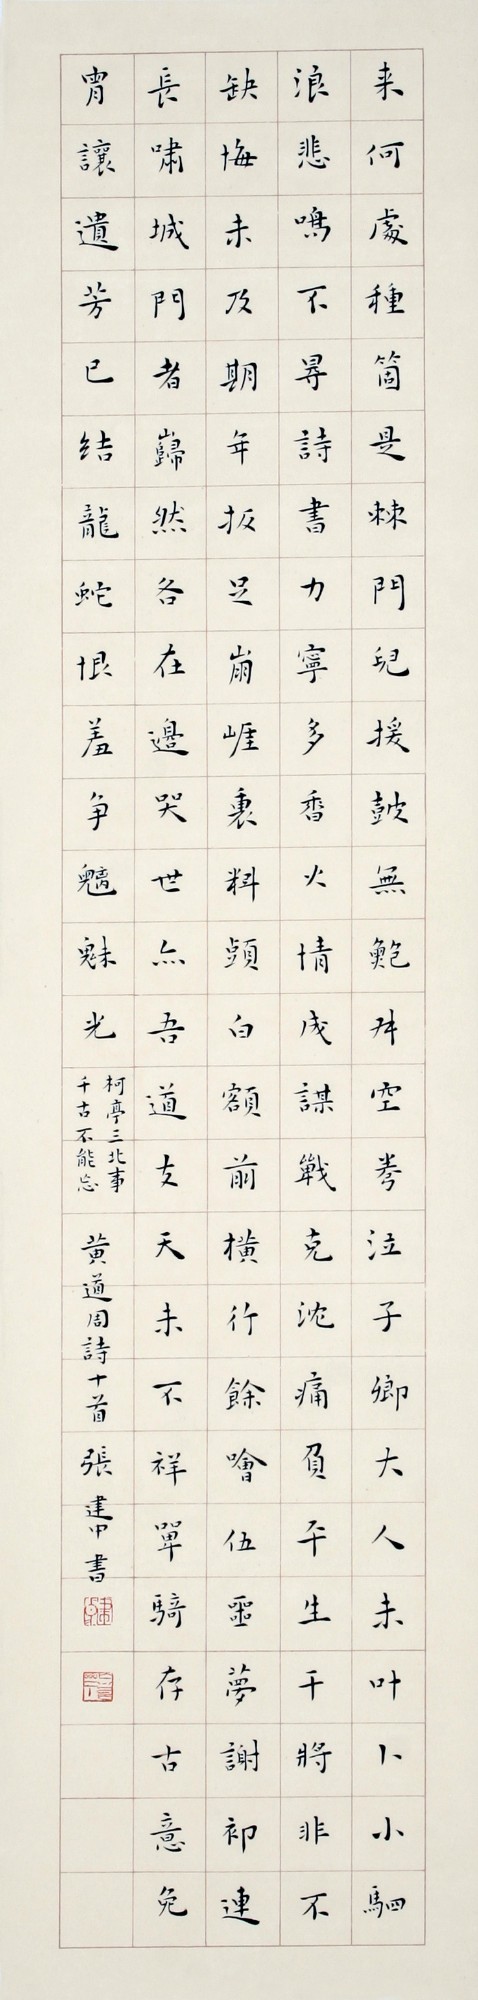 来何處種箇是棘門兒援鼓無鮑舛空拳泣子卿大人未叶卜小駟
浪悲鳴不尋詩書力寧多香火情成謀戰克沈痛負平生干將非不
缺悔未及期年扳足崩崖裏料顗白額前橫行餘噲伍噩夢謝祁連
長嘯城門者巋然各在邊哭世亦吾道支天未不祥單騎存古意免
胄讓遺芳已結龍蛇恨羞争魑魅光
柯亭三北事
千古不能忘
黃道周詩十首 張建中書